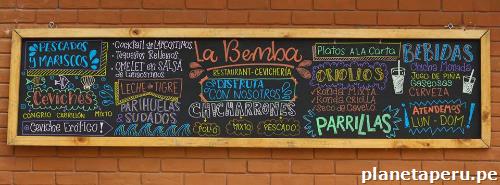 PESCADOS
Y MARISCOS
Ceviches
CONGRIO
CABRILLÓN
MIXTO
Ceviche Erótico!
Cocktail de LANGOSTINOS
Tequeños Rellenos
OMELET EN SALSA
DE Langostinos
LECHE de TIGRE
PARIHUELA
& SUDADOS
La Bemba
RESTAURANT-CEVICHERÍA
DISFRUTA
CON NOSOTROS
CHICHARRONES
POLLO
MIXTO
PESCADO
Platos A la Carta
CRIOLLOS
Ronda MIXTA
Ronda CRIOLLA
Seco de Cabrito
PARRILLAS
BEBIDAS
Chicha Morada
JUGO DE PIÑA
GASEOSAS
CERVEZA
¡ATENDEMOS!
LUN-DOM!
planetaperu.pe